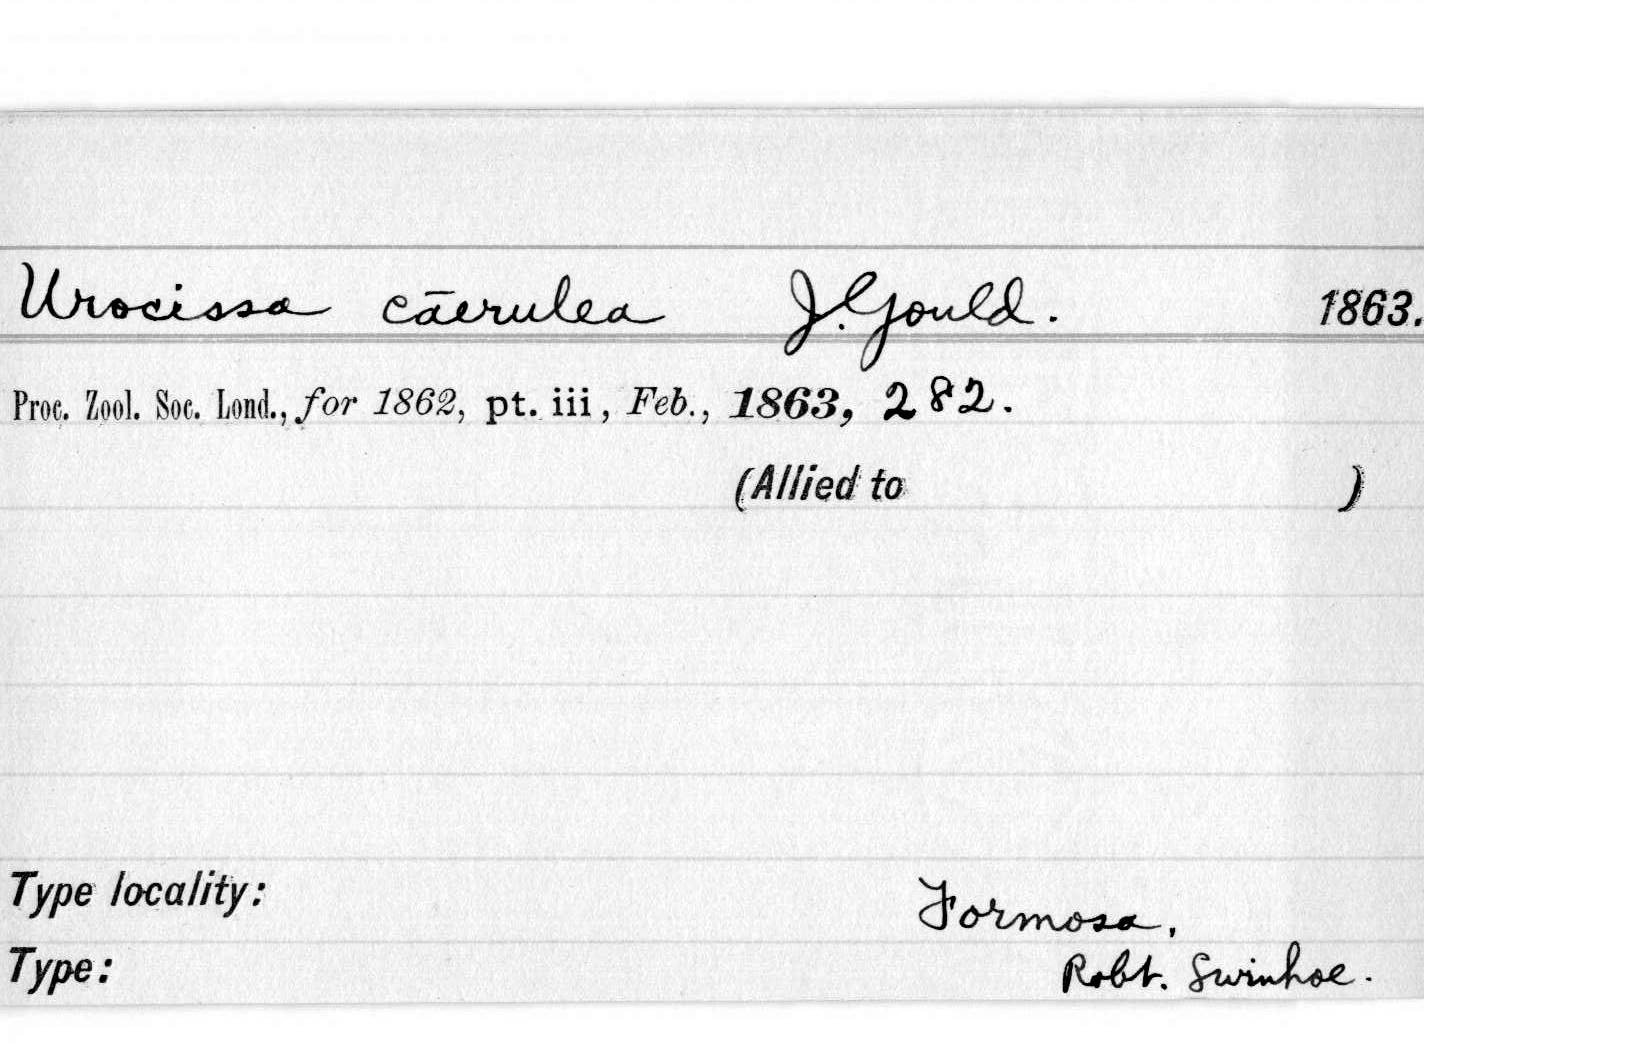 Urocissa cāerulea J. Gould. 1863.
Proc. Zool. Soc. Lond., for 1862, pt. iii, Feb., 1863, 282.
(Allied to )
Type locality: Formosa,
Type: Robt. Swinhoe.